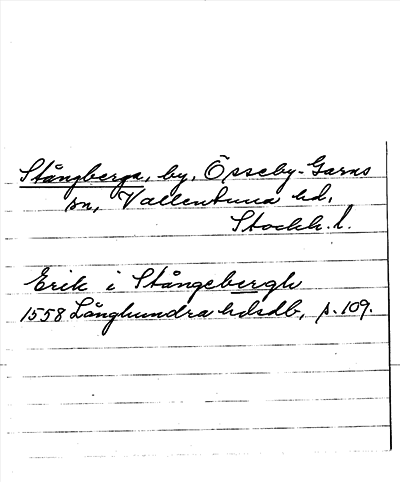 Stångberga, by, Össeby-Garns
sn, Vallentuna hd,
Stockh. l.
Erik i Stångebergh
1558 Långhundra hdsdb, p. 109.